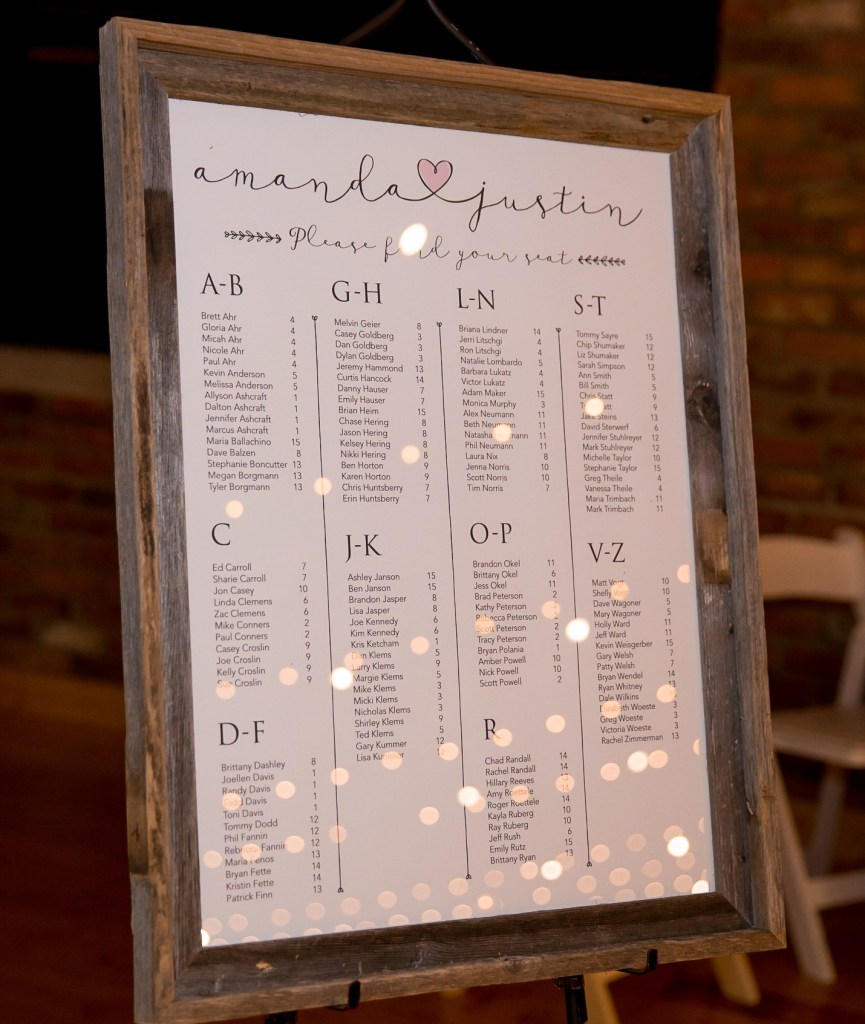 amanda justin
Please find your seat
A-B
Brett Ahr 4
Gloria Ahr 4
Micah Ahr 4
Nicole Ahr 4
Paul Ahr 4
Kevin Anderson 5
Melissa Anderson 5
Allyson Ashcraft 1
Dalton Ashcraft 1
Jennifer Ashcraft 1
Marcus Ashcraft 1
Maria Ballachino 15
Dave Balzen 8
Stephanie Boncutter 13
Megan Borgmann 13
Tyler Borgmann 13
C
Ed Carroll 7
Sharie Carroll 7
Jon Casey 10
Linda Clemens 6
Zac Clemens 6
Mike Conners 2
Paul Conners 2
Casey Croslin 9
Joe Croslin 9
Kelly Croslin 9
Croslin 9
D-F
Brittany Dashley 8
Joellen Davis 1
Randy Davis 1
Davis 1
Toni Davis 1
Tommy Dodd 12
Phil Fannin 12
Rebecca Fannin 12
Maria Fenos 13
Bryan Fette 14
Kristin Fette 14
Patrick Finn 13
G-H
Melvin Geier 8
Casey Goldberg 3
Dan Goldberg 3
Dylan Goldberg 3
Jeremy Hammond 13
Curtis Hancock 14
Danny Hauser 7
Emily Hauser 7
Brian Heim 15
Chase Hering 8
Jason Hering 8
Kelsey Hering 8
Nikki Hering 8
Ben Horton 9
Karen Horton 9
Chris Huntsberry 7
Erin Huntsberry 7
J-K
Ashley Janson 15
Ben Janson 15
Brandon Jasper 8
Lisa Jasper 8
Joe Kennedy 6
Kim Kennedy 6
Kris Ketcham 1
Klems 5
Larry Klems 9
Margie Klems 5
Mike Klems 3
Micki Klems 3
Nicholas Klems 3
Shirley Klems 9
Ted Klems 5
Gary Kummer 12
Lisa Kummer 12
L-N
Briana Lindner 14
Jerri Litschgi 4
Ron Litschgi 4
Natalie Lombardo 5
Barbara Lukatz 4
Victor Lukatz 4
Adam Maker 15
Monica Murphy 3
Alex Neumann 11
Beth Neumann 11
Natasha Neumann 11
Phil Neumann 11
Laura Nix 8
Jenna Norris 10
Scott Norris 10
Tim Norris 7
O-P
Brandon Okel 11
Brittany Okel 6
Jess Okel 11
Brad Peterson 2
Kathy Peterson 2
Rebecca Peterson
Scott Peterson 2
Tracy Peterson 2
Bryan Polania 1
Amber Powell 10
Nick Powell 10
Scott Powell 2
R
Chad Randall 14
Rachel Randall 14
Hillary Reeves 13
Amy Roettele 14
Roger Roettele 14
Kayla Ruberg 10
Ray Ruberg 10
Jeff Rush 6
Emily Rutz 15
Brittany Ryan 13
S-T
Tommy Sayre 15
Chip Shumaker 12
Liz Shumaker 12
Sarah Simpson 12
Ann Smith 5
Bill Smith 5
Chris Statt 9
Statt 9
Jake Steins 13
David Sterwerf 6
Jennifer Stuhlreyer 12
Mark Stuhlreyer 12
Michelle Taylor 10
Stephanie Taylor 15
Greg Theile 4
Vanessa Theile 4
Maria Trimbach 11
Mark Trimbach 11
V-Z
Matt 10
Shelly 10
Dave Wagoner 5
Mary Wagoner 5
Holly Ward 11
Jeff Ward 11
Kevin Weisgerber 15
Gary Welsh 7
Patty Welsh 7
Bryan Wendel 14
Ryan Whitney 13
Dale Wilkins
Elizabeth Woeste 3
Greg Woeste 3
Victoria Woeste 3
Rachel Zimmerman 13